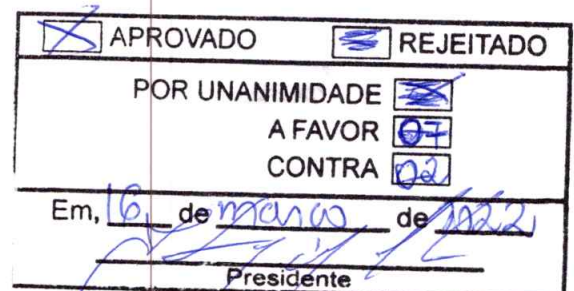 APROVADO REJEITADO
POR UNANIMIDADE
A FAVOR 07
CONTRA 02
Em, 16 de março de 2022
Presidente